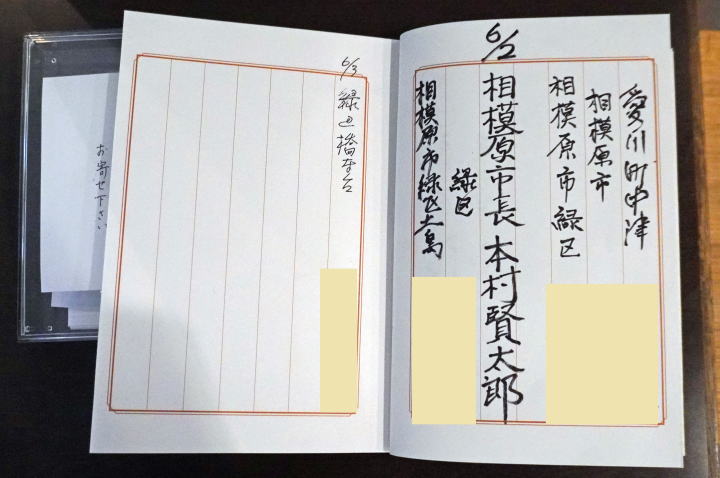 愛川町中津
相模原市
相模原市緑区
6/2
相模原市長 本村賢太郎
緑区
相模原市緑区大島
6/3 緑区橋本台
お寄せ下さい